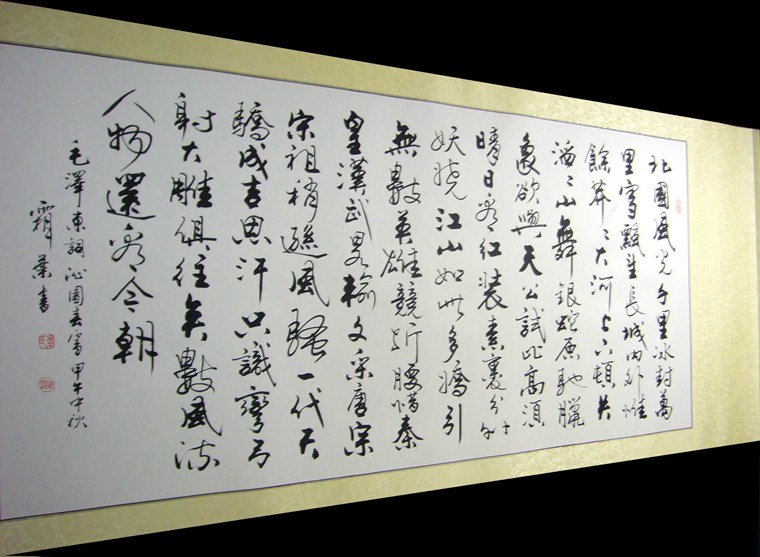 北國風光千里冰封萬
里雪飄望長城內外惟
餘莽〻大河上下頓失
滔〻山舞銀蛇原馳臘
象欲與天公試比高須
晴日看紅裝素裹分外
妖嬈江山如此多嬌引
無數英雄競折腰惜秦
皇漢武略輸文采唐宗
宋祖稍遜風騷一代天
驕成吉思汗只識彎弓
射大雕俱往矣數風流
人物還看今朝
毛澤東詞沁園春雪甲午中秋
霜葉書